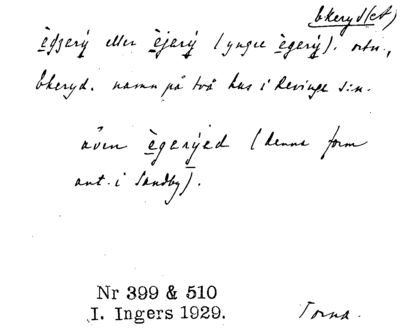 Ekeryd(et)
è̱dʒerý eller è̱jerý (yngre è̱gerý). ortn.,
Ekeryd. namn på två hus i Revinge s:n.
även è̱gerýed (denna form
ant. i Sandby).
Nr 399 & 510
I. Ingers 1929. Torna.